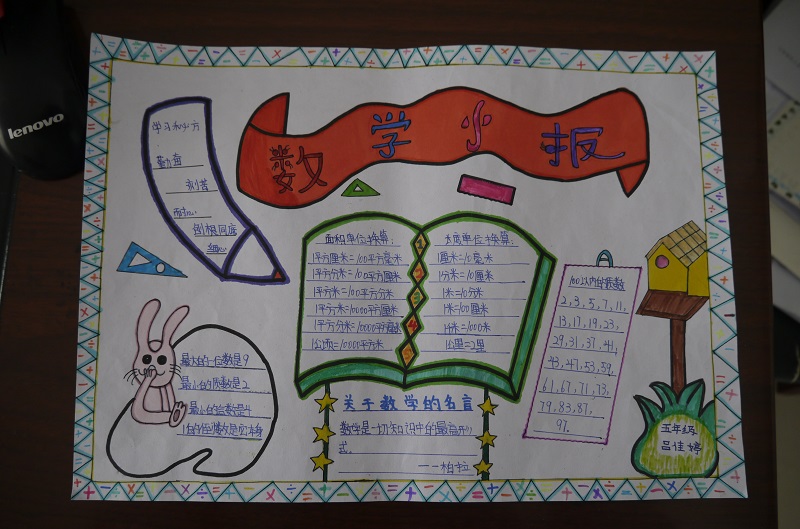 lenovo
数学小报
学习和小方
勤奋
刻苦
耐心
刨根问底
细心
面积单位换算:
1平方厘米=100平方毫米
1平方分米=100平方厘米
1平方米=100平方分米
1平方米=10000平方厘米
1平方分米=10000平方毫米
1公顷=10000平方米
1
2
3
4
5
长度单位换算:
1厘米=10毫米
1分米=10厘米
1米=10分米
1米=100厘米
1米=1000米
1公里=2里
100以内的质数
2,3,5,7,11,
13,17,19,23,
29,31,37,41,
43,47,53,59,
61,67,71,73,
79,83,87,
97.
最大的一位数是9
最小的质数是2
最小的合数是4
关于数学的名言
数学是一切知识中的最高形
式。
——柏拉
五年级
吕佳婷